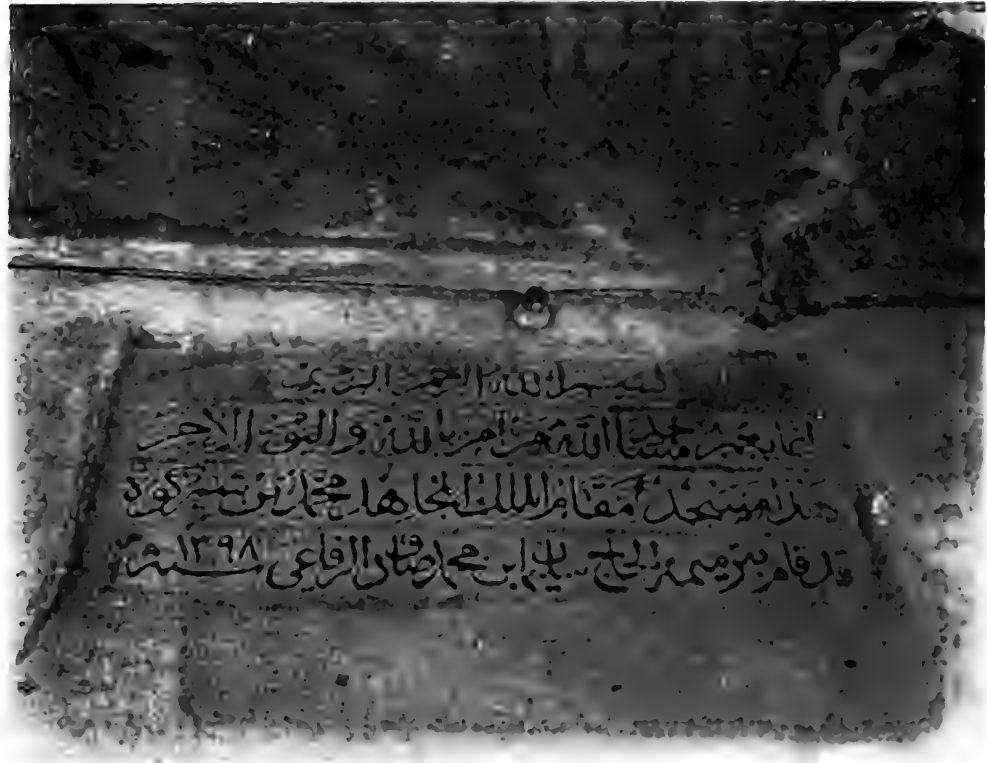 بسم الله الرحمن الرحيم
انما يعمر مساجد الله من امن بالله واليوم الاخر
هذا مسجد مقام الملك المجاهد محمد بن
وقد قام بترميمه الحاج ابن محمد صادق الرفاعي سنة ١٣٩٨